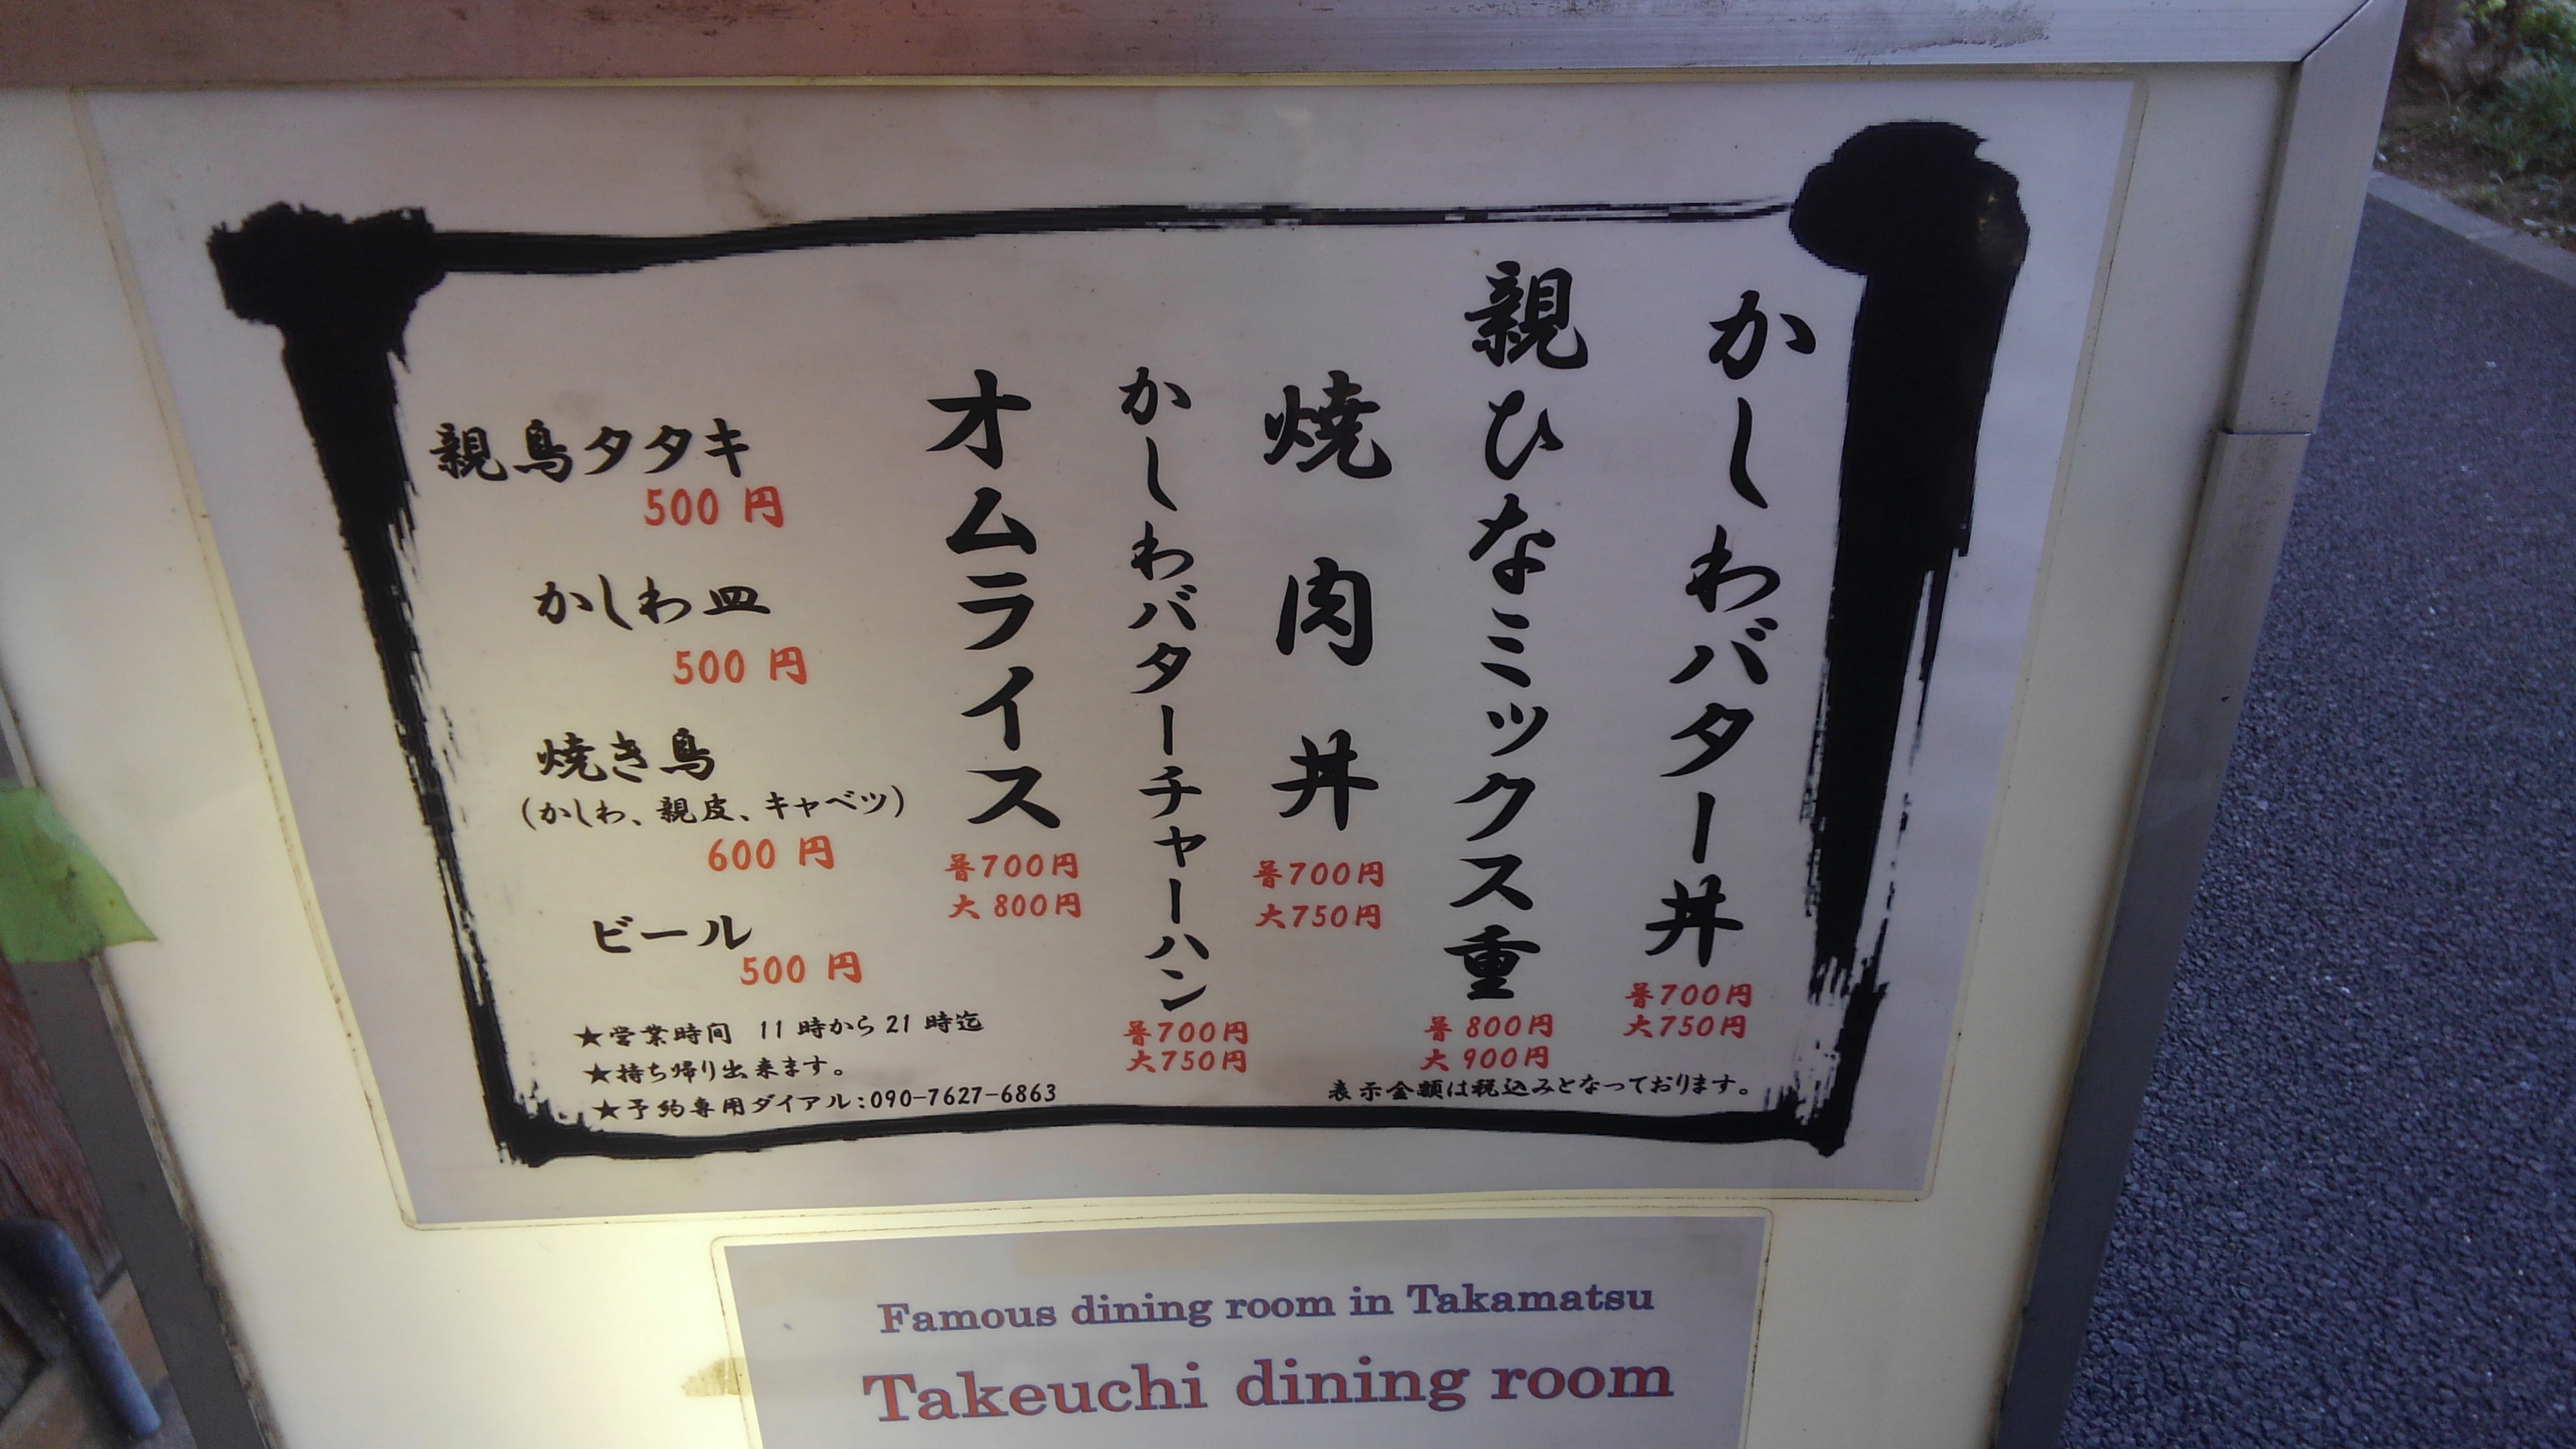 かしわバター丼
普700円
大750円
親ひなミックス重
普800円
大900円
焼肉丼
普700円
大750円
かしわバターチャーハン
普700円
大750円
オムライス
普700円
大800円
親鳥タタキ
500円
かしわ皿
500円
焼き鳥
(かしわ、親皮、キャベツ)
600円
ビール
500円
★営業時間 11時から21時迄
★持ち帰り出来ます。
★予約専用ダイアル:090-7627-6863
表示金額は税込みとなっております。
Famous dining room in Takamatsu
Takeuchi dining room